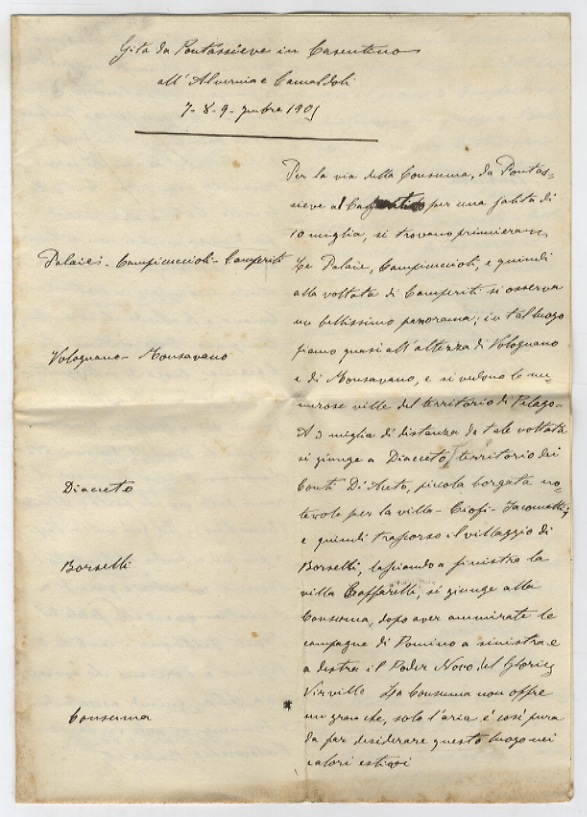 Gita da Pontassieve in Casentino
all'Alvernia e Camaldoli
7-8-9- 7mbre 1901
Per la via della Consuma, da Pontas-
sieve al per una salita di
10 miglia, si trovano primieram
Palaie - Campicuccioli - Camperiti
Le Palaie, Campicuccioli, e quindi
alla voltata di Camperiti si osserva
un bellissimo panorama; in tal luogo
siamo quasi all'altezza di Volognano
Volognano - Monsavano
e di Monsavano, e si vedono le nu-
merose ville del territorio di Pelago-
A 3 miglia di distanza da tale voltata
si giunge a Diacceto, territorio dei
Diacceto
Conti Di piccola borgata no-
tevole per la villa
e quindi trascorso il villaggio di
Borselli
Borselli, lasciando a sinistra la
villa si giunge alla
Consuma, dopo aver ammirate le
campagne di Pomino a sinistra e
a destra il Poder Novo del
La Consuma non offre
Consuma
un gran che, solo l'aria è così pura
da far desiderare questo luogo nei
calori estivi